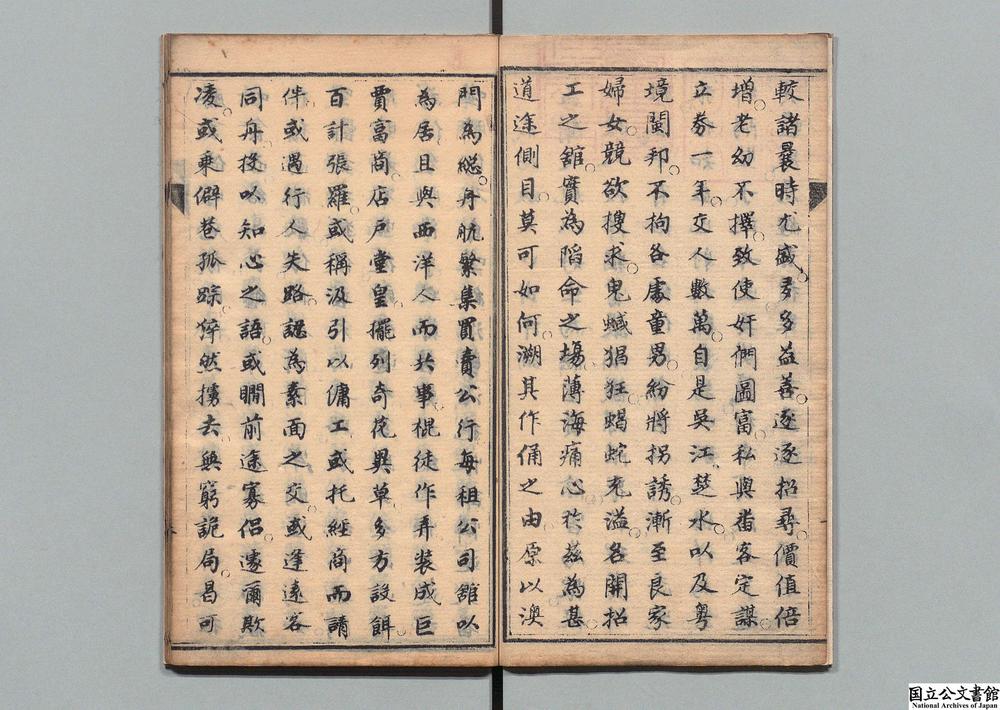 較諸曩時尤盛多多益善逐逐招尋價值倍
增老幼不擇致使奸們圖富私與番客定謀
立券一年交人數萬自是吳江楚水以及粵
境閩邦不拘各處童男紛將拐誘漸至良家
婦女競欲搜求鬼蜮猖狂蝎蛇充溢名開招
工之館實為陷命之場薄海痛心於茲為甚
道途側目莫可如何溯其作俑之由原以澳
門為總舟航繁集買賣公行每租公司館以
為居且與西洋人而共事棍徒作弄裝成巨
賈富商店戶堂皇擺列奇花異草多方設餌
百計張羅或稱汲引以傭工或托經商而請
伴或遇行人失路認為素面之交或逢遠客
同舟投以知心之語或瞯前途寡侶遽爾欺
凌或乘僻巷孤踪猝然擄去無窮詭局曷可
国立公文書館
National Archives of Japan